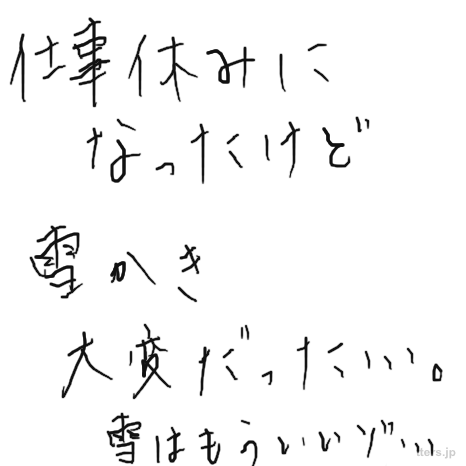 仕事休みに
なったけど
雪かき
大変だったい、、、。
雪はもういいゾ、、、
ters.jp